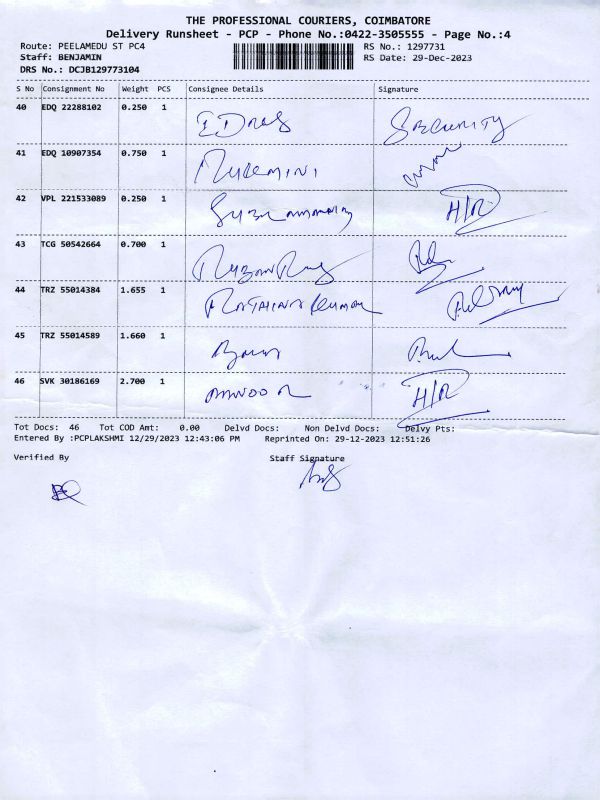 THE PROFESSIONAL COURIERS, COIMBATORE
Delivery Runsheet - PCP - Phone No.:0422-3505555 - Page No.:4
Route: PEELAMEDU ST PC4 RS No.: 1297731
Staff: BENJAMIN RS Date: 29-Dec-2023
DRS No.: DCJB129773104
S No Consignment No Weight PCS Consignee Details Signature
40 EDQ 22288102 0.250 1 SECURITY
41 EDQ 10907354 0.750 1
42 VPL 221533089 0.250 1 H/R
43 TCG 50542664 0.700 1
44 TRZ 55014384 1.655 1
45 TRZ 55014589 1.660 1
46 SVK 30186169 2.700 1 H/R
Tot Docs: 46 Tot COD Amt: 0.00 Delvd Docs: Non Delvd Docs: Delvy Pts:
Entered By :PCPLAKSHMI 12/29/2023 12:43:06 PM Reprinted On: 29-12-2023 12:51:26
Verified By Staff Signature